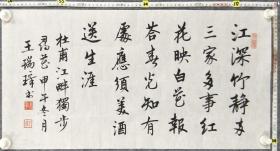 江深竹静两
三家多事红
花映白花报
答春光知有
處應须美酒
送生涯
杜甫江畔独步
寻花甲午冬月
王瑞璋书